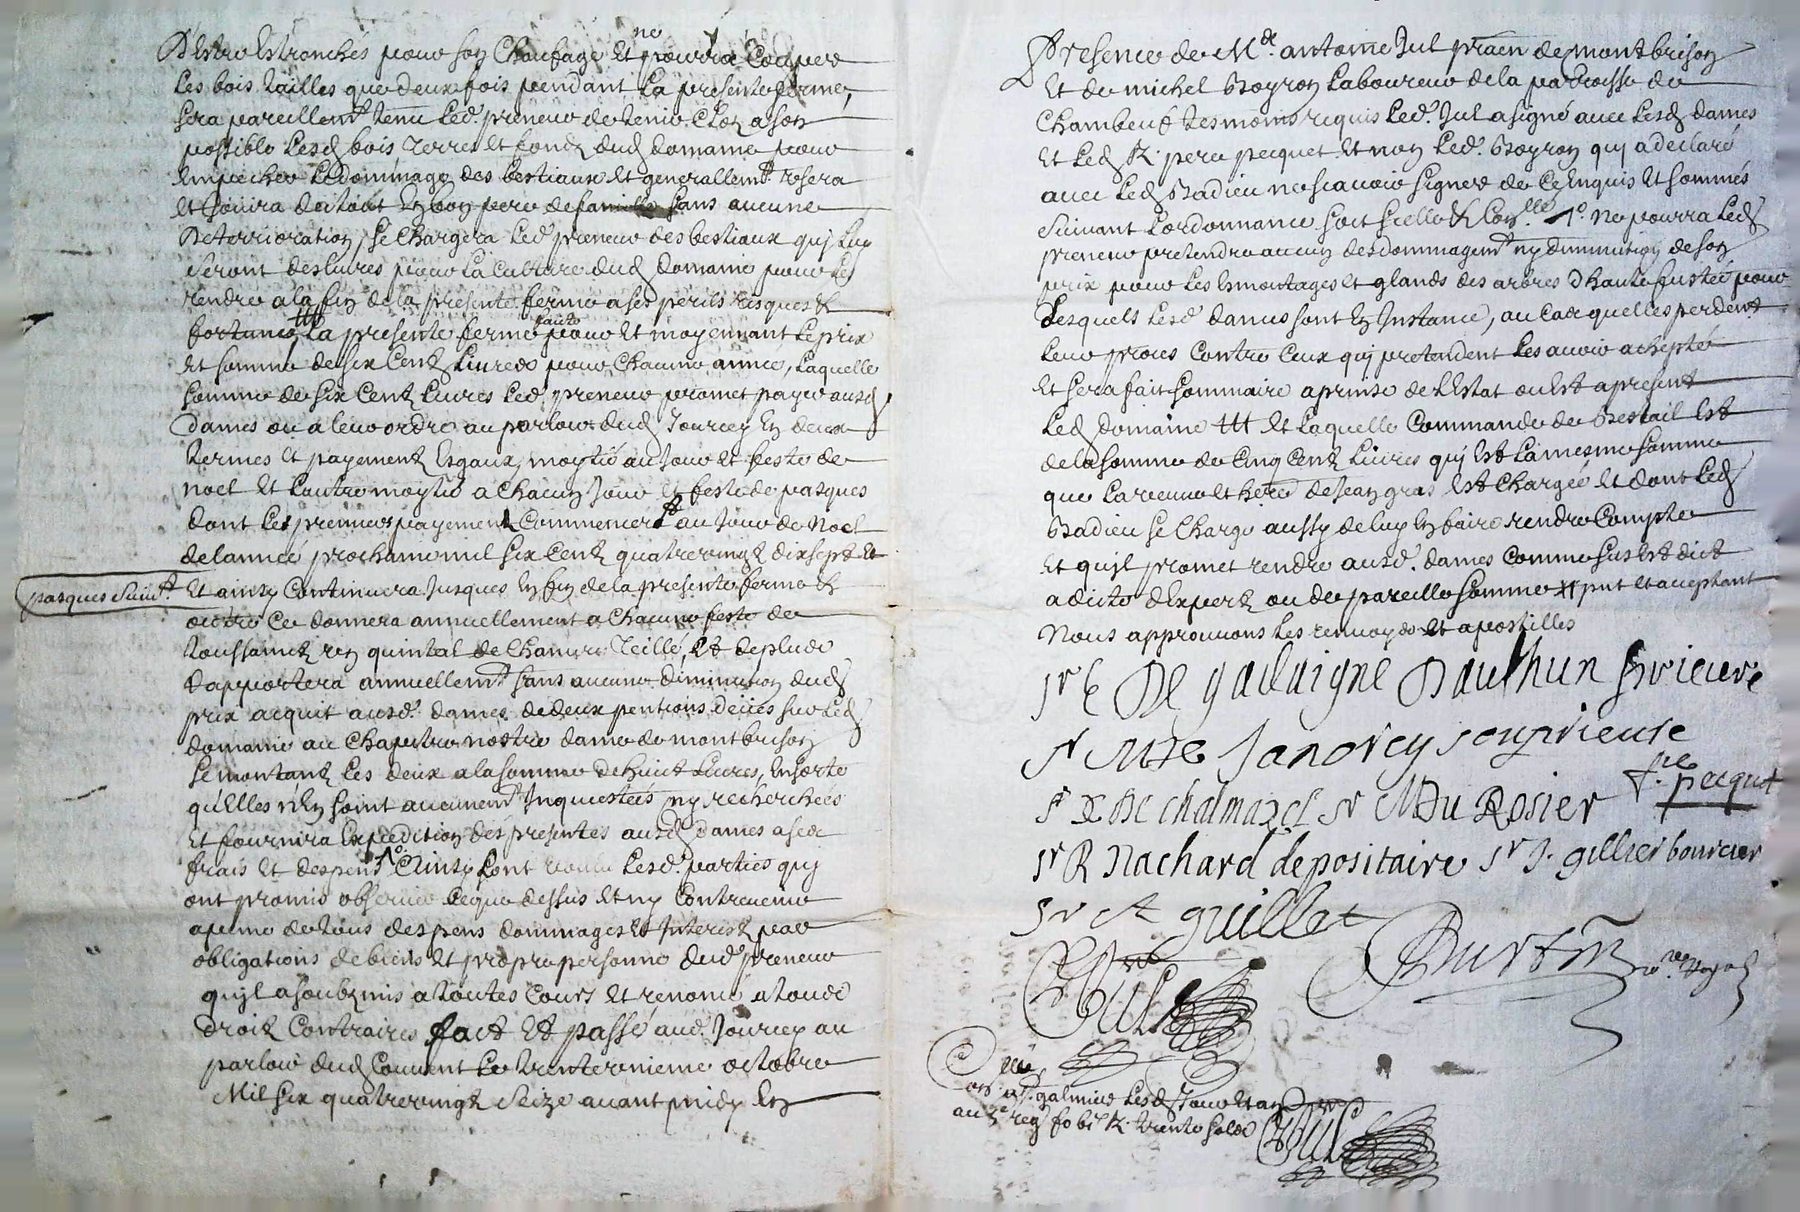 D'estre estronchés pour son chaufage et ne pourra couper
les bois tailles que deux fois pendant la presente ferme,
sera pareillemt tenu led. preneur de tenir clos a son
possible lesd bois terres et fondz dud domaine pour
empecher le dommage des bestiaux et generallemt usera
et jouira du tout en bon pere de famille sans aucune
deterrioration, se chargera led. preneur des bestiaux quj luy
seront deslivres pour la culture dud domaine pour les
rendre a la fin de la presente ferme a ses perils risques &
fortunes ttt la presente ferme faite pour et moyennant le prix
et somme de six centz livres pour chacune année, laquelle
somme de six centz livres led. preneur promet payer ausd
dames ou a leur ordre au parloir dud Jourcey en deux
termes et payementz esgaux, moytié au jour et feste de
noel et l'autre moytié a chacun jour et feste de pasques
dont les premiers payementz commencert au jour de Noel
de l'année prochaine mil six centz quatrevingtz dix sept et
pasques suivt. et ainsy continuera jusques en fin de la presente ferme &
outre ce donnera annuellement a chacune feste de
toussaintz un quintal de chanvre teillé, et de plus
d'apportera annuellemt sans aucune diminution dud
prix acquit ausd. dames de deux pentions deües sur led
domaine au chapitre nostre dame de montbrison
se montantz les deux a la somme de huict livres, ensorte
qu'elles n'en soint aucunemt Inquiestées ny recherchées
et fournira expedition des presentes ausd dames a ses
frais et despens 1o. Ainsy l'ont voulu lesd. parties quj
ont promis observer ce que dessus et ny contrevenir
a peine de tous despens dommages et Interestz par
obligations de biens et propre personne dud. preneur
qujl a soubzmis a toutes cours et renoncé a tous
droitz contraires fact et passé aud. Jourcey au
parloir dud couvent le trente unieme octobre
Mil six quatrevingtz seize avant midy En
Presence de Me. antoine Jul praēn de montbrison
Et de michel Boyron laboureur de la parroisse de
Chambeuf tesmoins requis led. Jul a signé avec lesd dames
et led R. pere pecquet et non led. Boyron quj a declaré
avec led Badieu ne scavoir signer de ce enquis et sommés
suivant l'ordonnance soit scellé & conllé 1o. ne pourra led
preneur pretendre aucun desdommagemt ny diminution de son
prix pour les esmontages et glands des arbres d'haute fustée pour
lesquels lesd. dames sont en Instance, au cas quelles perdent
leur proces contre ceux quj pretendent les avoir achepté
et sera fait sommaire aprinse de l'estat ou est a present
led domaine ttt et laquelle commande de bestail est
de la somme de cinq centz livres quj est la mesme somme
que la veuve et here de Jean gras est chargée et dont led
Badieu se charge aussy de luy en faire rendre compte
et qujl promet rendre ausd. dames comme sus est dict
a dicte d'expertz ou de pareille somme # pnt et aceptant
Nous approuvons les renvoyds et apostilles
sr C De gadaigne Dauthun prieure
sr M De Janorey souprieure
sr X De chalmazel sr M Du Rosier f. pecquet
sr R Nachard depositaire sr J. gillier boursier
sr A guillet
Jul
Burtin nore Royal
a st galmier lesd jour et an
au 2e regr fo 61 R. trente solz
Jul